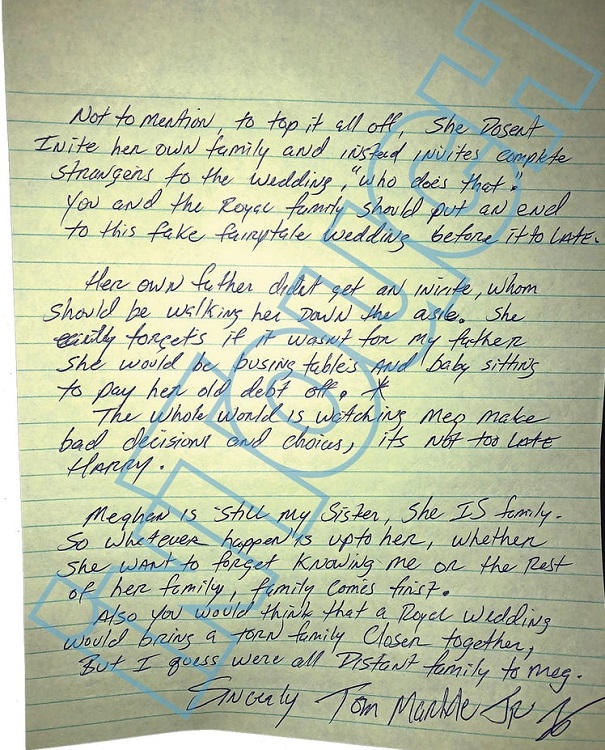 Not to mention, to top it all off, She Dosent
Inite her own family and instead invites complete
strangers to the wedding, "who does that".
You and the Royal family should put an end
to this fake fairytale wedding before it to LATE.
Her own father didnt get an invite, whom
should be walking her Down the asle. She
easily forgets if it wasnt for my father
She would be busing tables AND baby sitting
to pay her old debt off. *
The whole world is watching Meg make
bad decisions and choices, its NOT too LATE
HARRY.
Meghan is still my Sister, She IS family.
So whatever happen is upto her, whether
She want to forget Knowing me or the Rest
of her family, family comes first.
Also you would think that a Royal wedding
would bring a torn family Closer together,
But I guess were all Distant family to Meg.
Sincerly Tom Markle Jr
iNTOUCH